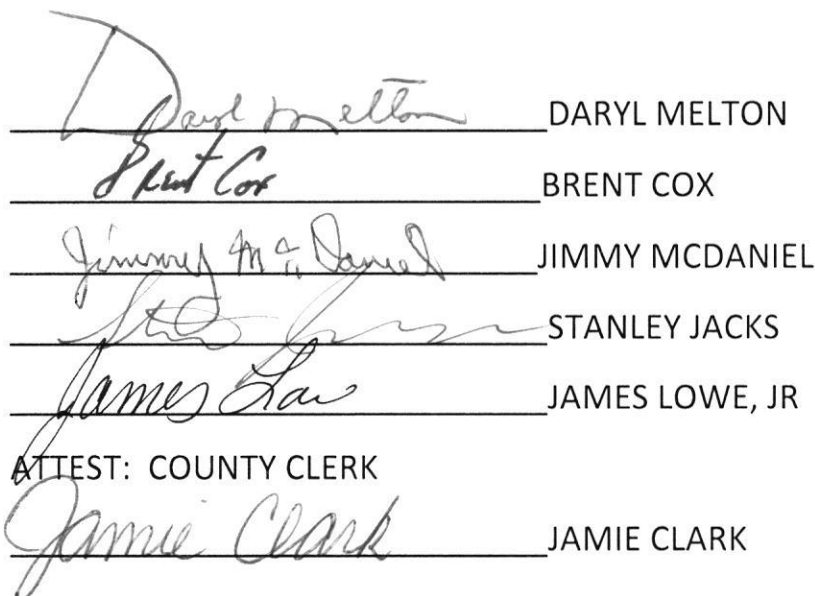 Daryl Melton DARYL MELTON
Brent Cox BRENT COX
Jimmy McDaniel JIMMY MCDANIEL
STANLEY JACKS
James Low JAMES LOWE, JR
ATTEST: COUNTY CLERK
Jamie Clark JAMIE CLARK